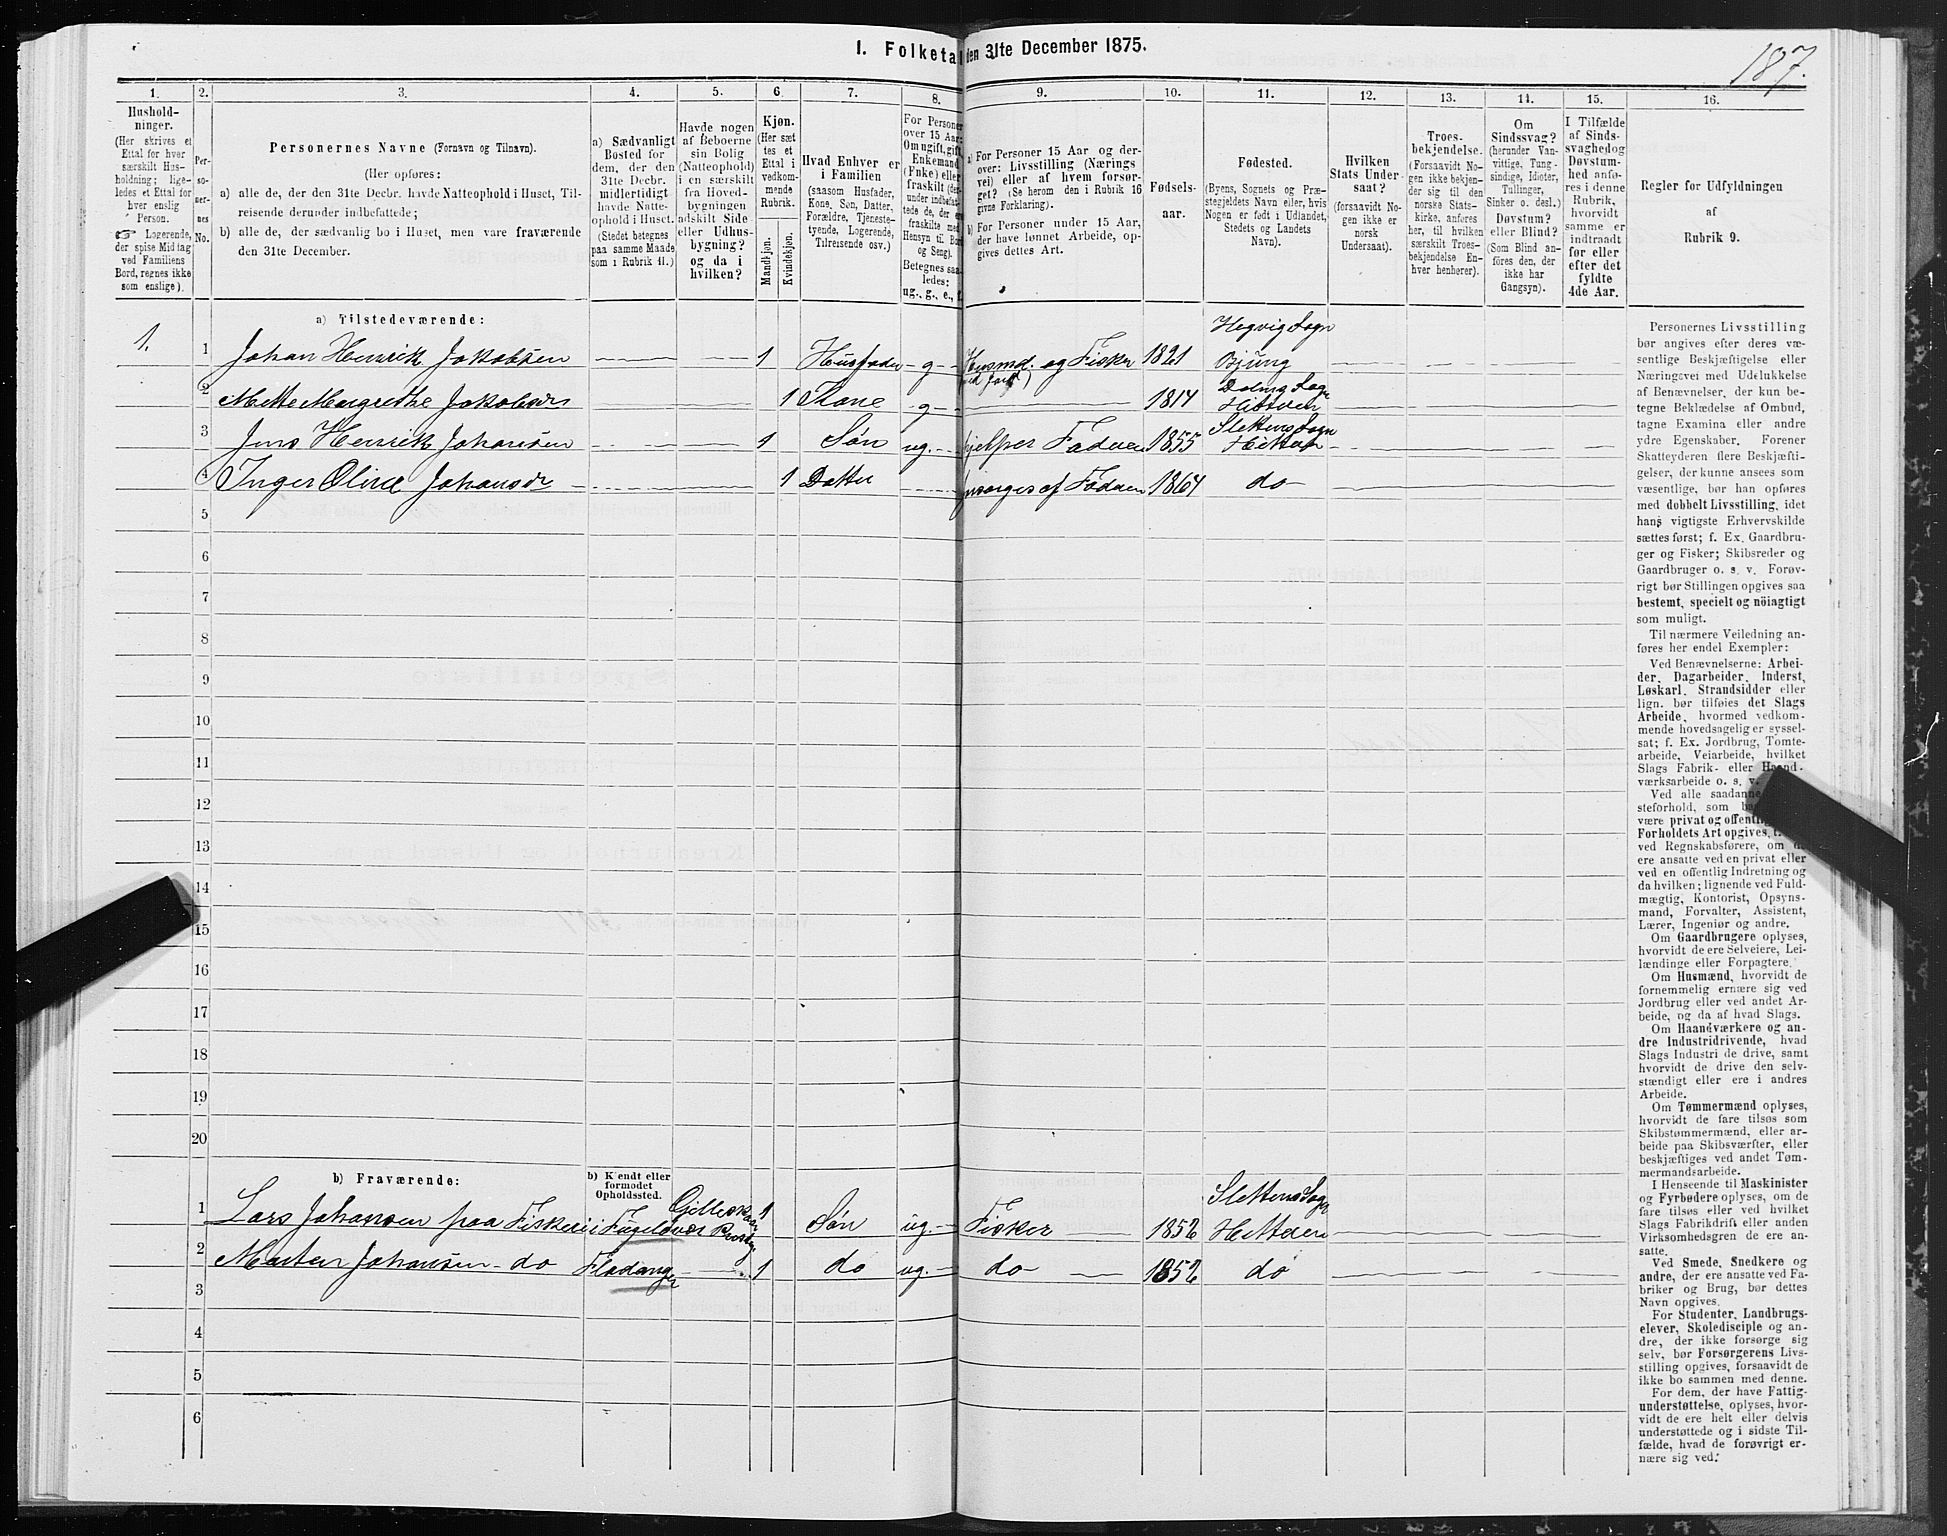 I. Folketal den 31te December 1875.
187.
1. 2. 3. 4. 5. 6. 7. 8. 9. 10. 11. 12. 13. 14. 15. 16.
Hushold-
ninger.
(Her skrives et
Ettal for hver
særskilt Hus-
holdning; lige-
ledes et Ettal for
hver enslig
Person.
☞ Logerende,
der spise Middag
ved Familiens
Bord, regnes ikke
som enslige).
Per-
so-
ner-
nes
No.
Personernes Navne (Fornavn og Tilnavn).
(Her opføres:
a) alle de, der den 31te Decbr. havde Natteophold i Huset, Til-
reisende derunder indbefattede;
b) alle de, der sædvanlig bo i Huset, men vare fraværende
den 31te December.
a) Sædvanligt
Bosted for
dem, der den
31te Decbr.
midlertidigt
havde Natte-
ophold i Huset.
(Stedet betegnes
paa samme Maade
som i Rubrik 11.)
Havde nogen
af Beboerne
sin Bolig
(Natteophold)
i en særskilt
fra Hoved-
bygningen
adskilt Side-
eller Udhus-
bygning?
og da i
hvilken?
Kjøn.
(Her sæt-
tes et
Ettal i
vedkom-
mende
Rubrik.
Mandkjøn.
Kvindekjøn.
Hvad Enhver er
i Familien
(saasom Husfader,
Kone, Søn, Datter,
Forældre, Tjeneste-
tyende, Logerende,
Tilreisende osv.)
For Personer
over 15 Aar:
Om ugift, gift,
Enkemand
(Enke) eller
fraskilt
Betegnes saa-
ledes:
ug., g., e., f.
a) For Personer 15 Aar og der-
over: Livsstilling (Nærings
vei) eller af hvem forsør-
get? (Se herom den i Rubrik 16
givne Forklaring).
b) For Personer under 15 Aar,
der have lønnet Arbeide, op-
gives dettes Art.
Fødsels-
aar.
Fødested.
(Byens, Sognets og Præ-
stegjeldets Navn eller, hvis
Nogen er født i Udlandet,
Stedets og Landets
Navn).
Hvilken
Stats Under-
saat?
(forsaavidt No-
gen ikke er
norsk
Undersaat).
Troes-
bekjendelse.
(Forsaavidt No-
gen ikke bekjen-
der sig til den
norske Stats-
kirke, anføres
her, til hvilken
særskilt Troes-
bekjendelse En-
hver henhører).
Om
Sindssvag?
(herunder Van-
vittige, Tung-
sindige, Idioter,
Tullinger,
Sinker o. desl.)
Døvstum?
eller Blind?
(Som Blind an-
føres den, der
ikke har
Gangsyn).
I Tilfælde
af Sinds-
svaghed og
Døvstum-
hed anfø-
res i denne
Rubrik,
hvorvidt
samme er
indtraadt
før eller
efter det
fyldte
4de Aar.
Regler for Udfyldningen
af
Rubrik 9.
a) Tilstedeværende:
1. 1 Johan Henrik Jakobsen 1 Husfader g Husmd. og Fisker 1821 Hegvig Sogn Bjung
2 Mette Margrethe Jakobsdr 1 Kone g 1814 Dolmø Sogn Hitteren
3 Jens Henrik Johansen 1 Søn ug. hjelper Faderen 1855 Slettens Sogn Hitteren
4 Inger Oline Johansdr 1 Datter forsørges af Faderen 1864 do
5
6
7
8
9
10
11
12
13
14
15
16
17
18
19
20
b) Fraværende:
b) Kjendt eller
formodet
Opholdssted.
1 Lars Johansen paa Fiskeri i Fugeløvær Gilleskaar Præstegj 1 Søn ug. Fisker 1852 Slettens Sogn Hitteren
2 Morten Johansen do Fladanger 1 do ug. do 1852 do
3
4
5
6
Personernes Livsstilling
bør angives efter deres væ-
sentlige Beskjæftigelse eller
Næringsvei med Udelukkelse
af Benævnelser, der kun be-
tegne Beklædelse af Ombud,
tagne Examina eller andre
ydre Egenskaber. Forener
Skatteyderen flere Beskjæfti-
gelser, der kunne ansees som
væsentlige, bør han opføres
med dobbelt Livsstilling, idet
hans vigtigste Erhvervskilde
sættes først; f. Ex. Gaardbru-
ger og Fisker; Skibsreder og
Gaardbruger o. s. v. Forøv-
rigt bør Stillingen opgives saa
bestemt, specielt og nöiagtigt
som muligt.
Til nærmere Veiledning an-
føres her endel Exempler:
Ved Benævnelserne: Arbei-
der, Dagarbeider, Inderst,
Løskarl, Strandsidder eller
lign. bør tilføies det Slags
Arbeide, hvormed vedkom-
mende hovedsagelig er syssel-
sat; f. Ex. Jordbrug, Tomte-
arbeide, Veiarbeide, hvilket
Slags Fabrik- eller Haand-
værksarbeide o. s. v.
Ved alle saadanne
steforhold, som
være privat og offentlig
Forholdets Art opgives,
ved Regnskabsførere, om
ere ansatte ved en privat eller
ved en offentlig Indretning og
da hvilken; lignende ved Fuld-
mægtig, Kontorist, Opsyns-
mand, Forvalter, Assistent,
Lærer, Ingeniør og andre.
Om Gaardbrugere oplyses,
hvorvidt de ere Selveiere, Lei-
lændinge eller Forpagtere.
Om Husmænd, hvorvidt de
fornemmelig ernære sig ved
Jordbrug eller ved andet Ar-
beide, og da af hvad Slags.
Om Haandværkere og an-
dre Industridrivende, hvad
Slags Industri de drive, samt
hvorvidt de drive den selv-
stændigt eller ere i andres
Arbeide.
Om Tømmermænd oplyses,
hvorvidt de fare tilsøs som
Skibstømmermænd, eller ar-
beide paa Skibsværfter, eller
beskjæftiges ved andet Tøm-
mermandsarbeide.
I Henseende til Maskinister
og Fyrbødere oplyses, om de
fare tilsøs eller ved hvilket
Slags Fabrikdrift eller anden
Virksomhedsgren de ere an-
satte.
Ved Smede, Snedkere og
andre, der ere ansatte ved Fa-
briker og Brug, bør dettes
Navn opgives.
For Studenter, Landbrugs-
elever, Skoledisciple og an-
dre, der ikke forsørge sig
selv, bør Forsørgerens Livs-
stilling opgives, forsaavidt de
ikke bo sammen med denne.
For dem, der have Fattig-
understøttelse, oplyses, hvor-
vidt de ere helt eller delvis
understøttede og i sidste Til-
fælde, hvad de forøvrigt er-
nære sig ved.